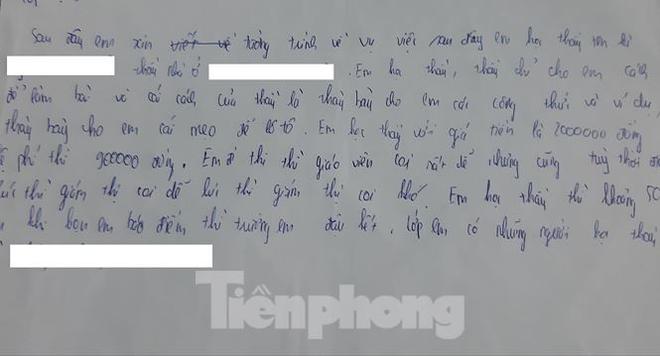 Sau đây em xin viết về tường trình về vụ việc sau đây em học thầy tên là
thầy nhà ở . Em học thầy, thầy chỉ cho em cách
để làm bài và cái cách của thầy là thầy bày cho em cái công thức và ví dụ,
thầy bày cho em cái mẹo để lô tô. Em học thầy với giá tiền là 2000000 đồng
lệ phí thi 900000 đồng. Em đi thi thì giáo viên coi rất dễ nhưng cũng tuỳ thời
lúc thì giám thị coi dễ lúc thì giám thị coi khó. Em học thầy thì khoảng 50
khi bọn em báo điểm thì trường em đậu hết, lớp em có những người học thầy
Tiềnphong